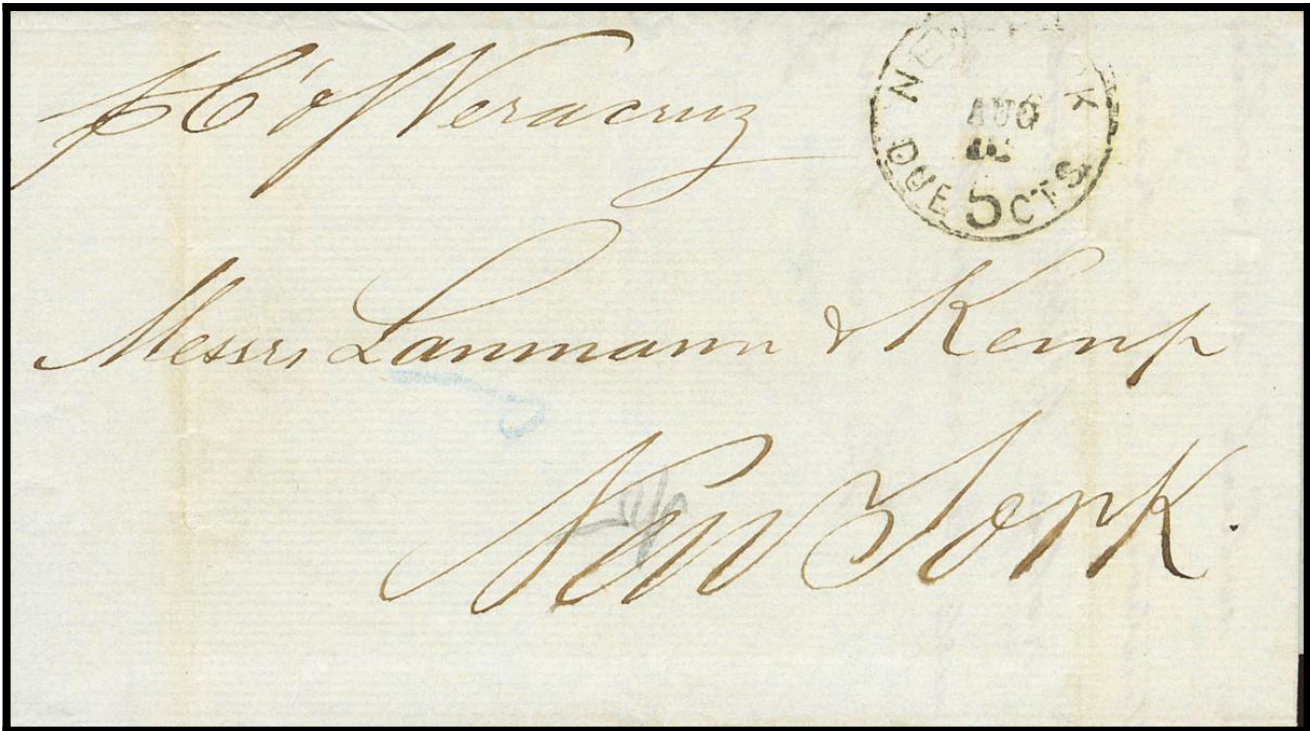 p C' of Veracruz
NEW YORK
AUG
DUE 5 CTS
Messrs Lanmann & Kemp
New York.